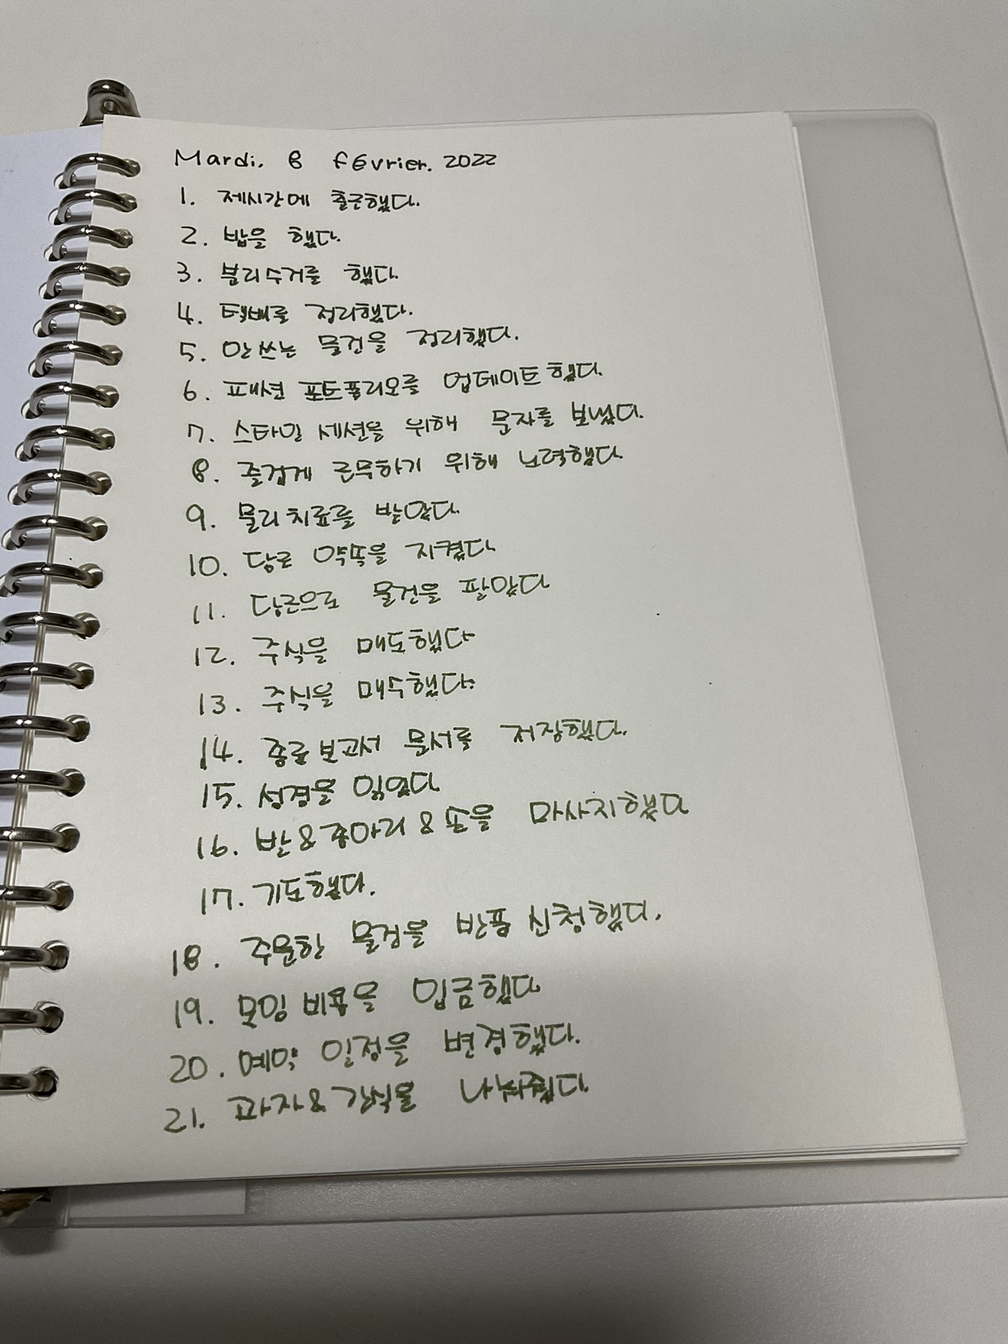 Mardi. 8 février. 2022
1. 제시간에 출근했다.
2. 밥을 했다.
3. 분리수거를 했다.
4. 택배를 정리했다.
5. 안 쓰는 물건을 정리했다.
6. 패션 포트폴리오를 업데이트 했다.
7. 스타일 세션을 위해 문자를 보냈다.
8. 즐겁게 근무하기 위해 노력했다.
9. 물리치료를 받았다.
10. 당근 약속을 지켰다
11. 당근으로 물건을 팔았다
12. 주식을 매도했다
13. 주식을 매수했다.
14. 종료 보고서 문서를 저장했다.
15. 성경을 읽었다
16. 발&종아리&손을 마사지했다
17. 기도했다.
18. 주문한 물건을 반품 신청했다.
19. 모임 비용을 입금했다
20. 예약 일정을 변경했다.
21. 과자&간식을 나눠줬다.